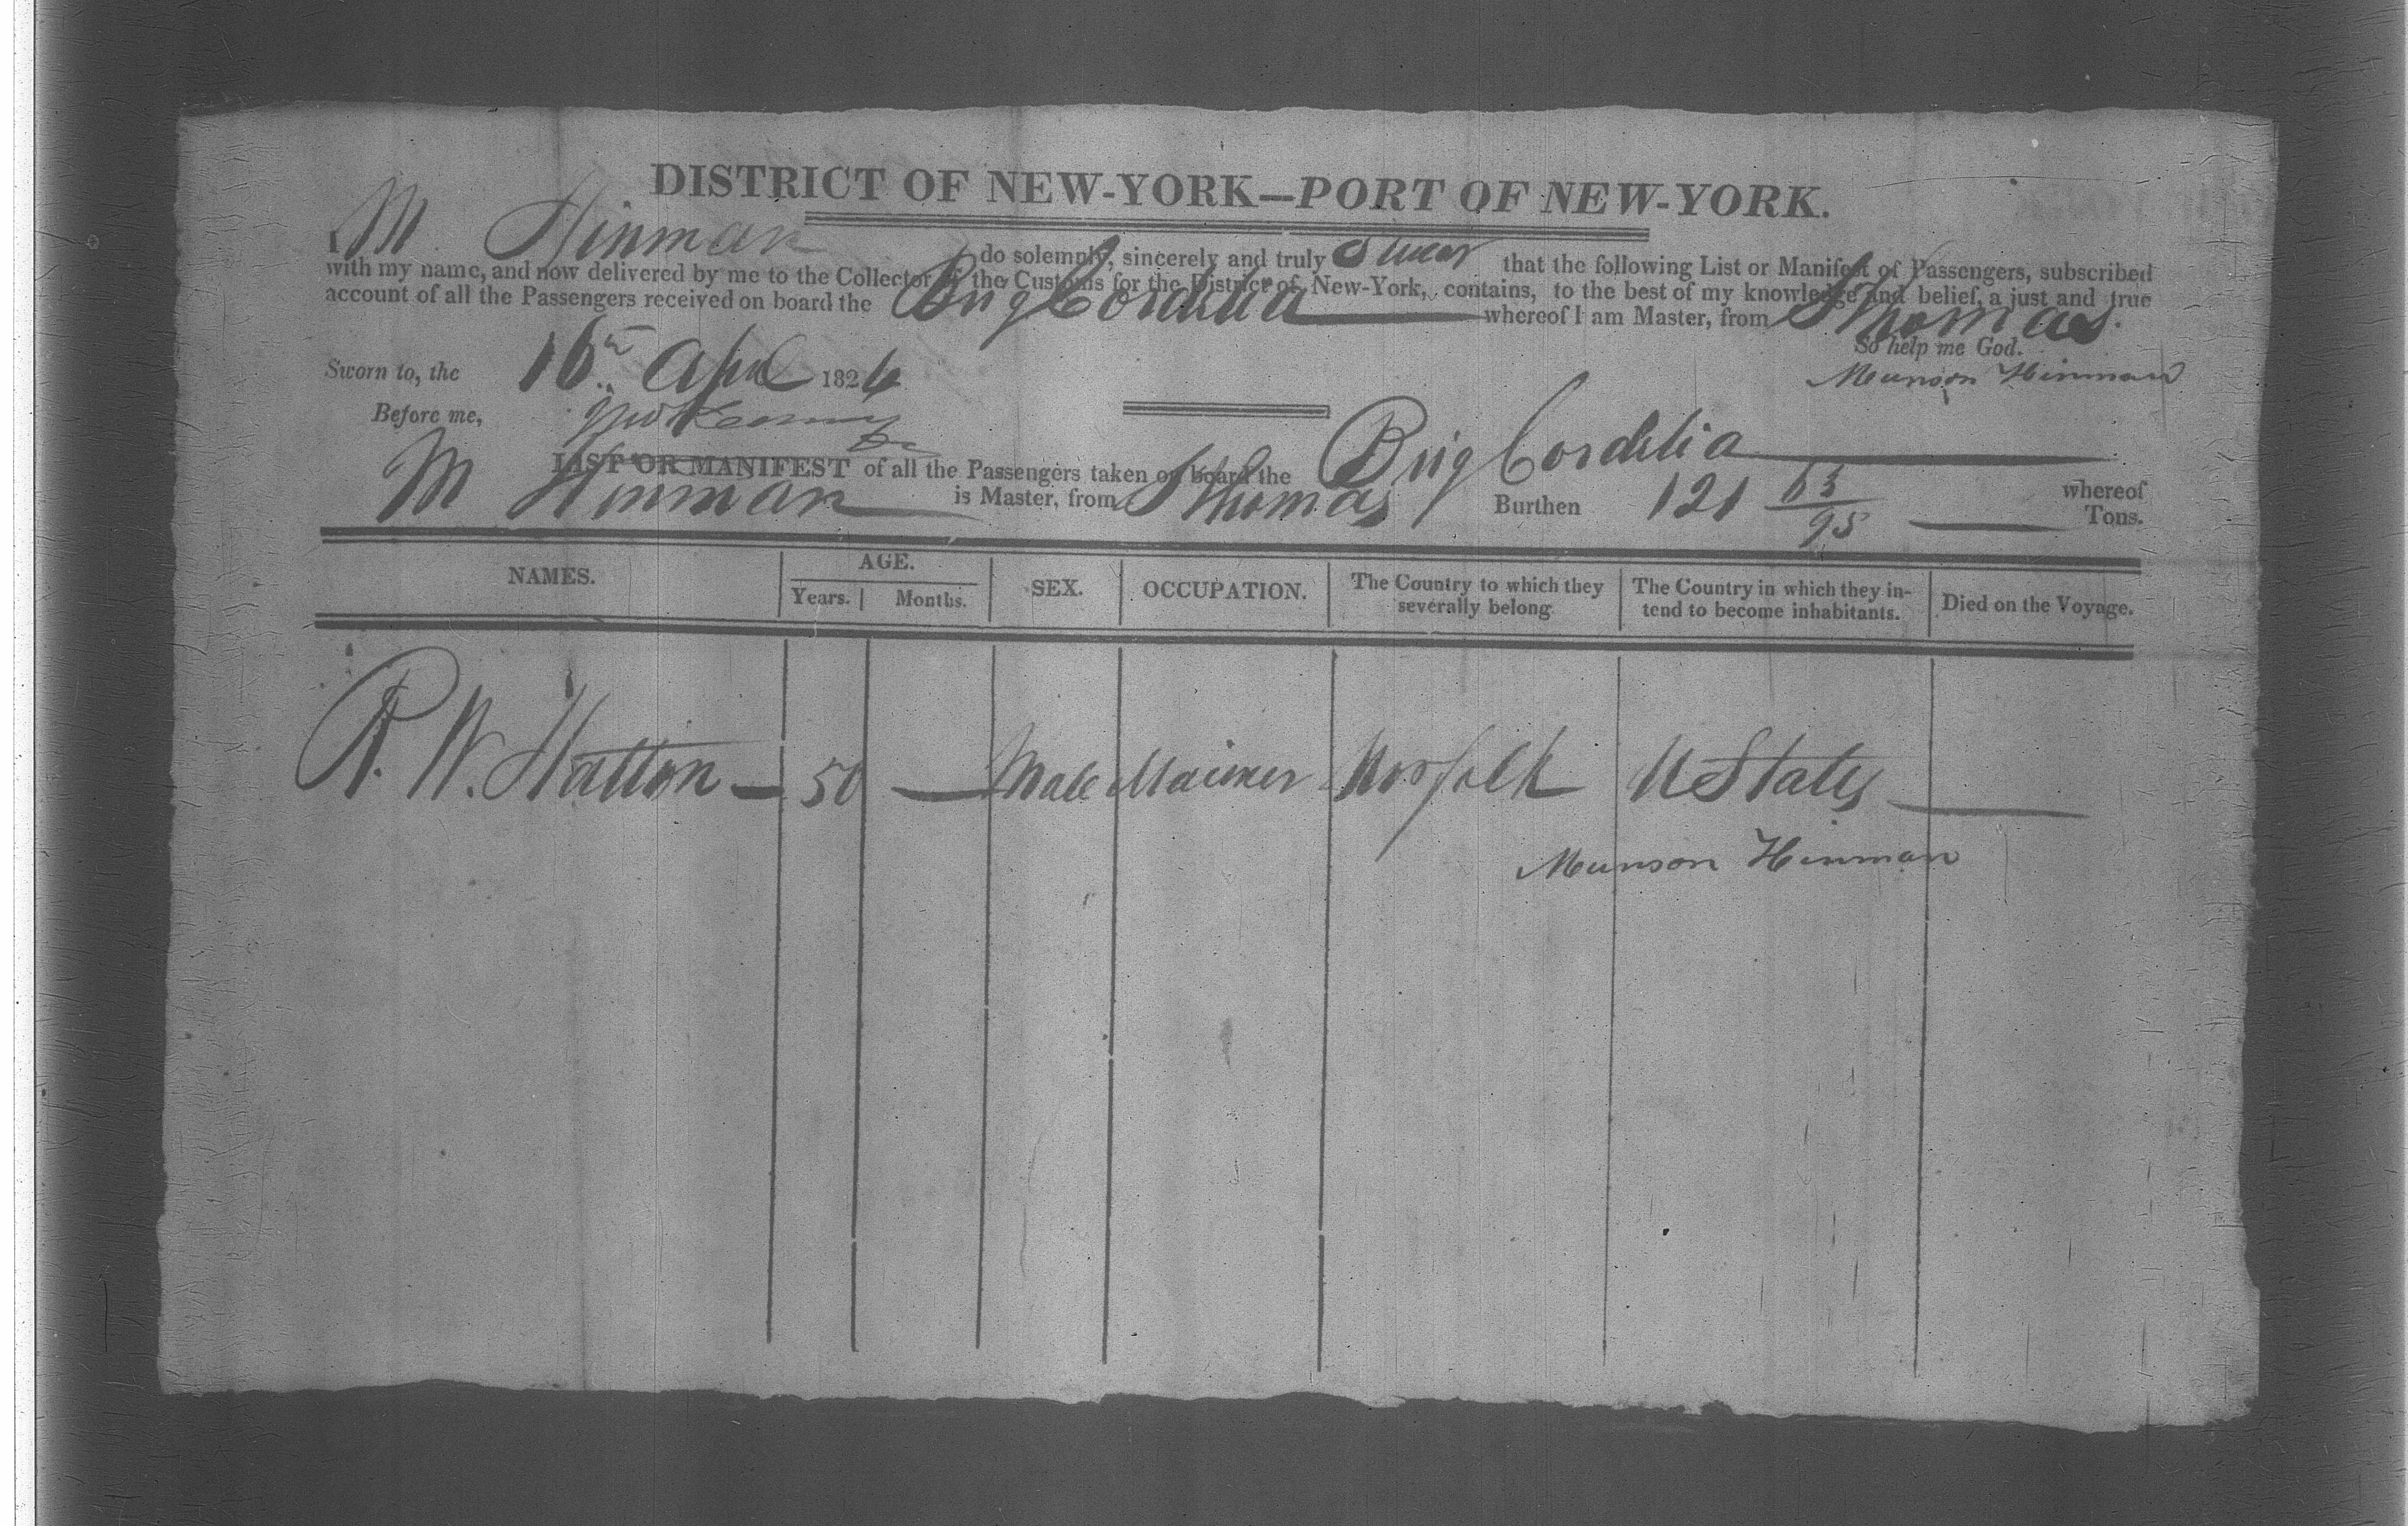 DISTRICT OF NEW-YORK—PORT OF NEW-YORK.
I M Hinman do solemnly, sincerely and truly Swear that the following List or Manifest of Passengers, subscribed
with my name, and now delivered by me to the Collector of the Customs for the District of New-York, contains, to the best of my knowledge and belief, a just and true
account of all the Passengers received on board the Brig Cordelia whereof I am Master, from St Thomas.
So help me God.
Sworn to, the 16th April 1826 Munson Hinman
Before me,
LIST OR MANIFEST of all the Passengers taken on board the Brig Cordelia whereof
M Hinman is Master, from St Thomas Burthen 121 63/95 Tons.
NAMES. AGE. SEX. OCCUPATION. The Country to which they severally belong The Country in which they intend to become inhabitants. Died on the Voyage.
Years. Months.
R. W. Hatton — 50 — Male Mariner Norfolk U States —
Munson Hinman